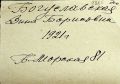 Богуславская
Дина Борисовна
1921 г
Б. Морская 81